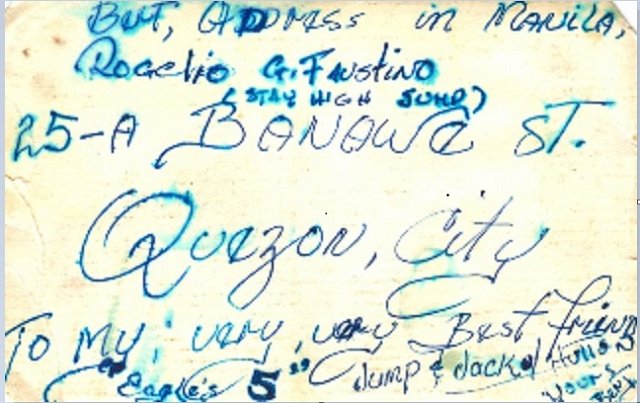 But, ADDRESS in MANILA,
ROGELIO G. FAUSTINO
(STAY HIGH JUMP)
25-A BANAWE ST.
QUEZON, City
To My, very, very Best friend
"Eagle's 5" Jump & Jacket
Your's